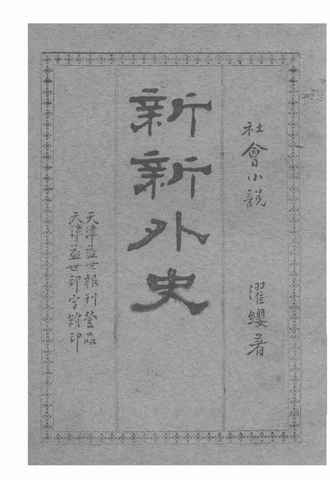 社會小說 濯纓著
新新外史
天津益世報刊登品
天津益世印字館印